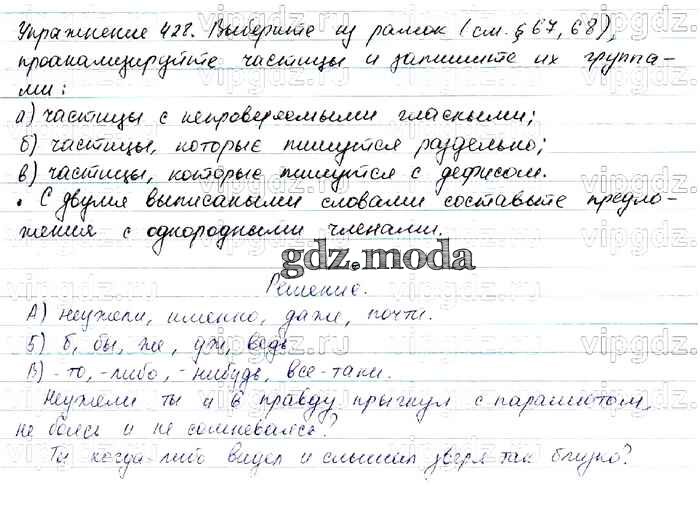 Упражнение 428. Выберите из рамок (см. § 67, 68),
проанализируйте частицы и запишите их группа-
ми:
а) частицы с непроверяемыми гласными;
б) частицы, которые пишутся раздельно;
в) частицы, которые пишутся с дефисом.
• С двумя выписаными словами составьте предло-
жения с однородными членами.
gdz.moda
Решение.
А) неужели, именно, даже, почти.
Б) б, бы, же, уж, ведь
В) -то, -либо, -нибудь, все-таки.
Неужели ты и в правду прыгнул с парашютом,
не боясь и не сомневался?
Ты когда-либо видел и слышал зверя так близко?